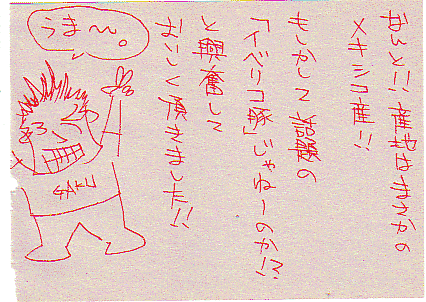 なんと!!豚肉はまさかの
メキシコ産!!
もしかして話題の
「イベリコ豚」じゃねーのか!?
と興奮して
おいしく頂きました!!
うま〜。
SAKE